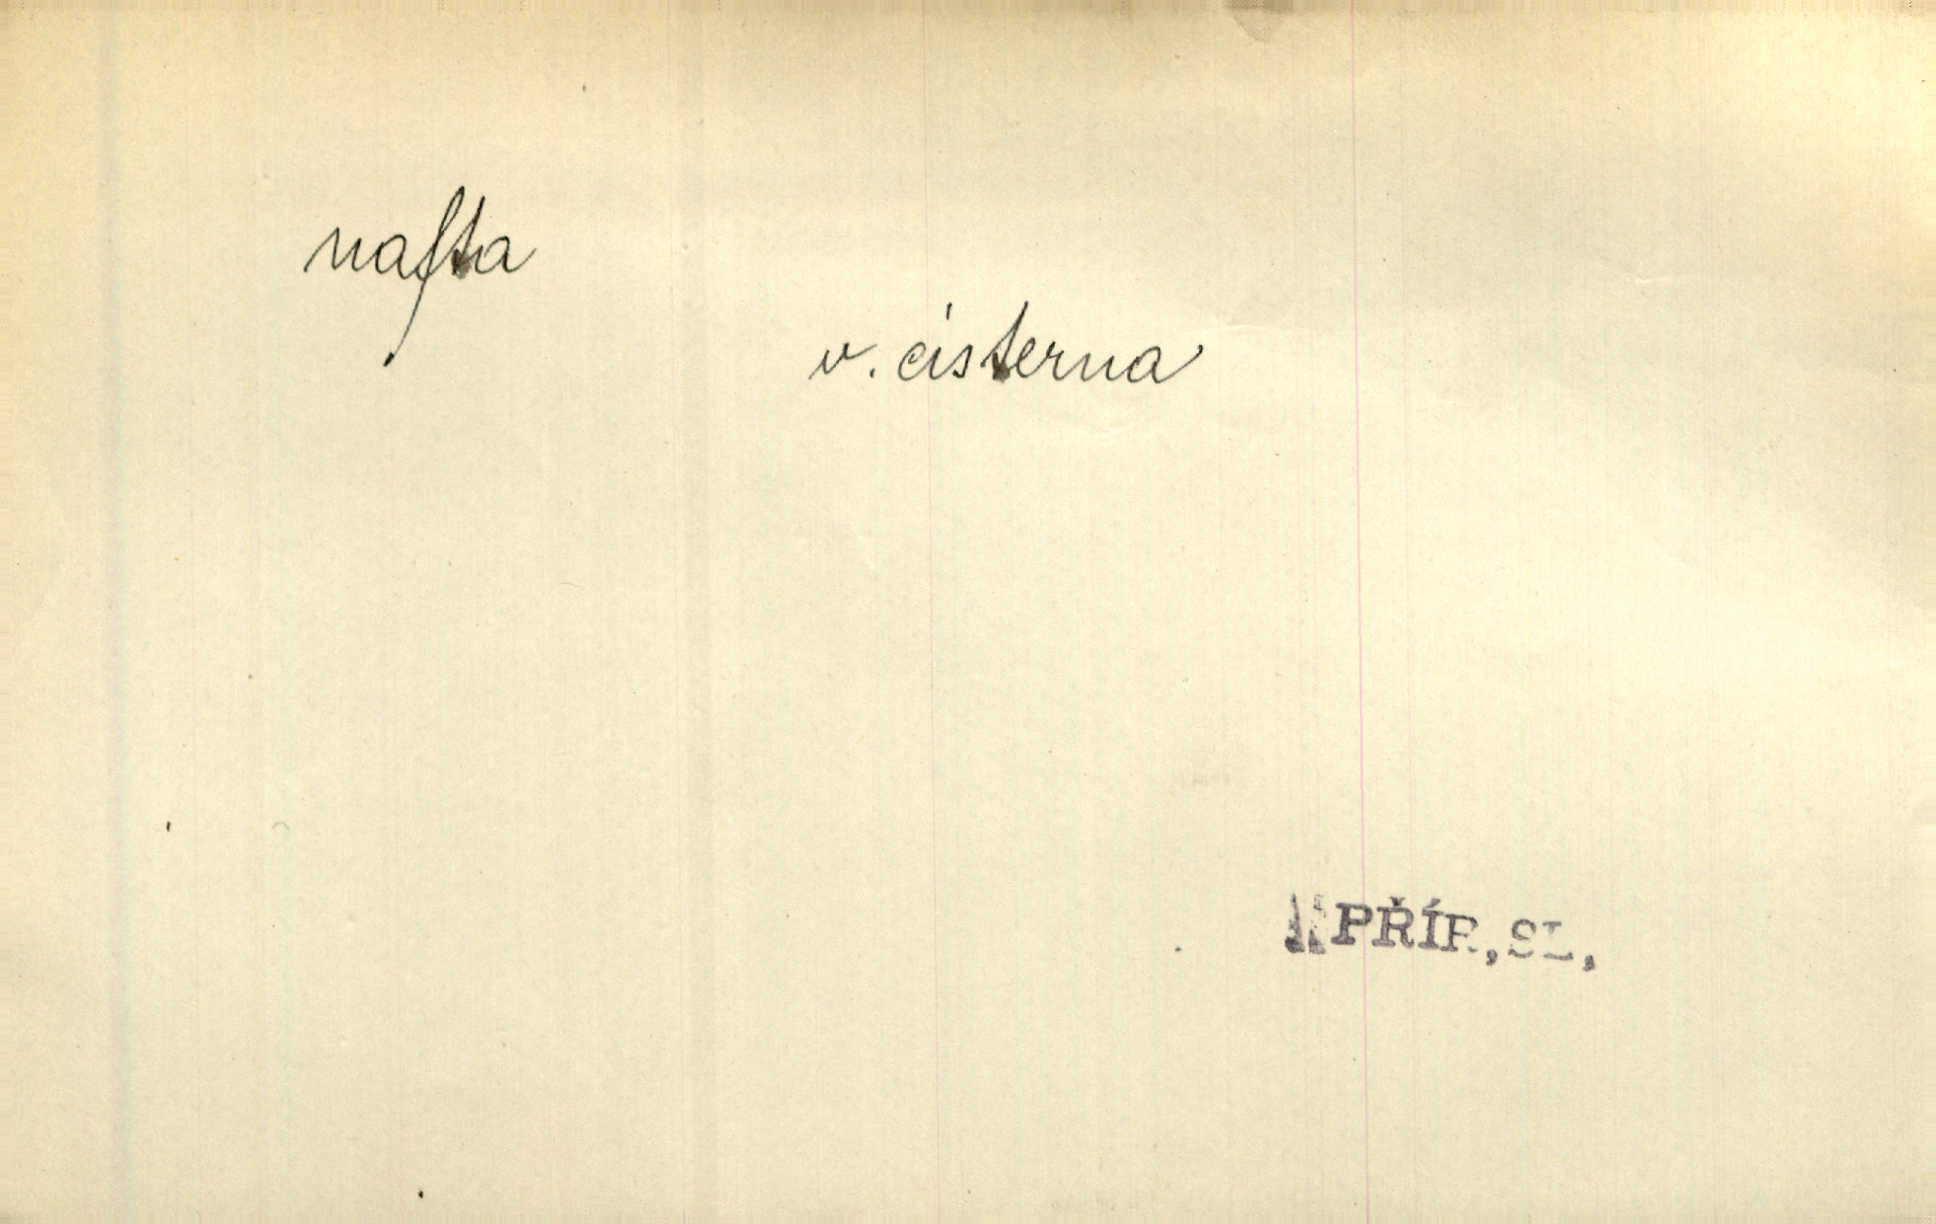 nafta
v. cisterna
PŘÍR,SL,